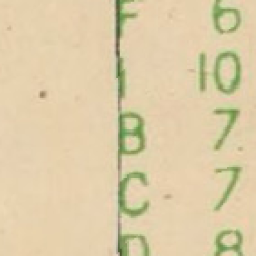 F 6
I 10
B 7
C 7
D 8